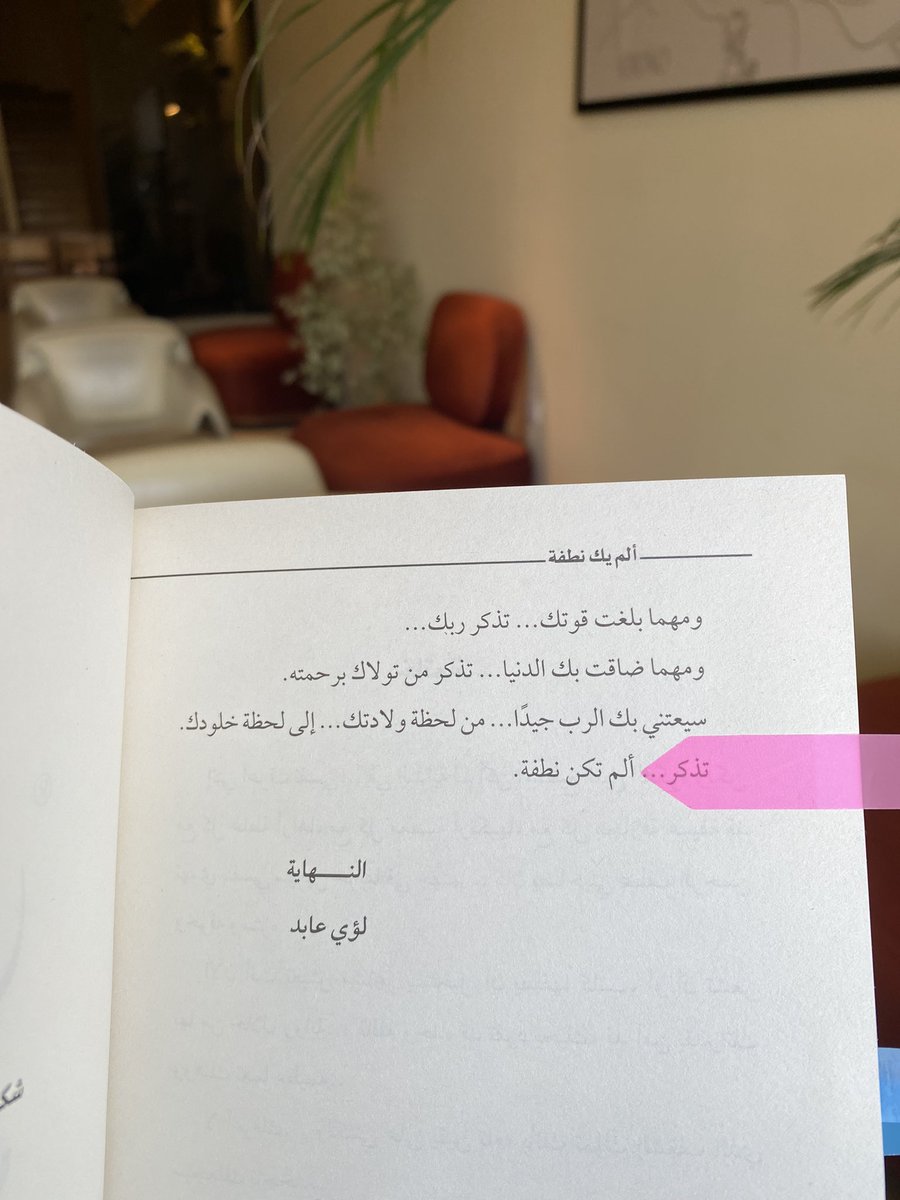 ألم يك نطفة
ومهما بلغت قوتك... تذكر ربك...
ومهما ضاقت بك الدنيا... تذكر من تولاك برحمته.
سيعتني بك الرب جيدًا... من لحظة ولادتك... إلى لحظة خلودك.
تذكر... ألم تكن نطفة.
النـــــهاية
لؤي عابد